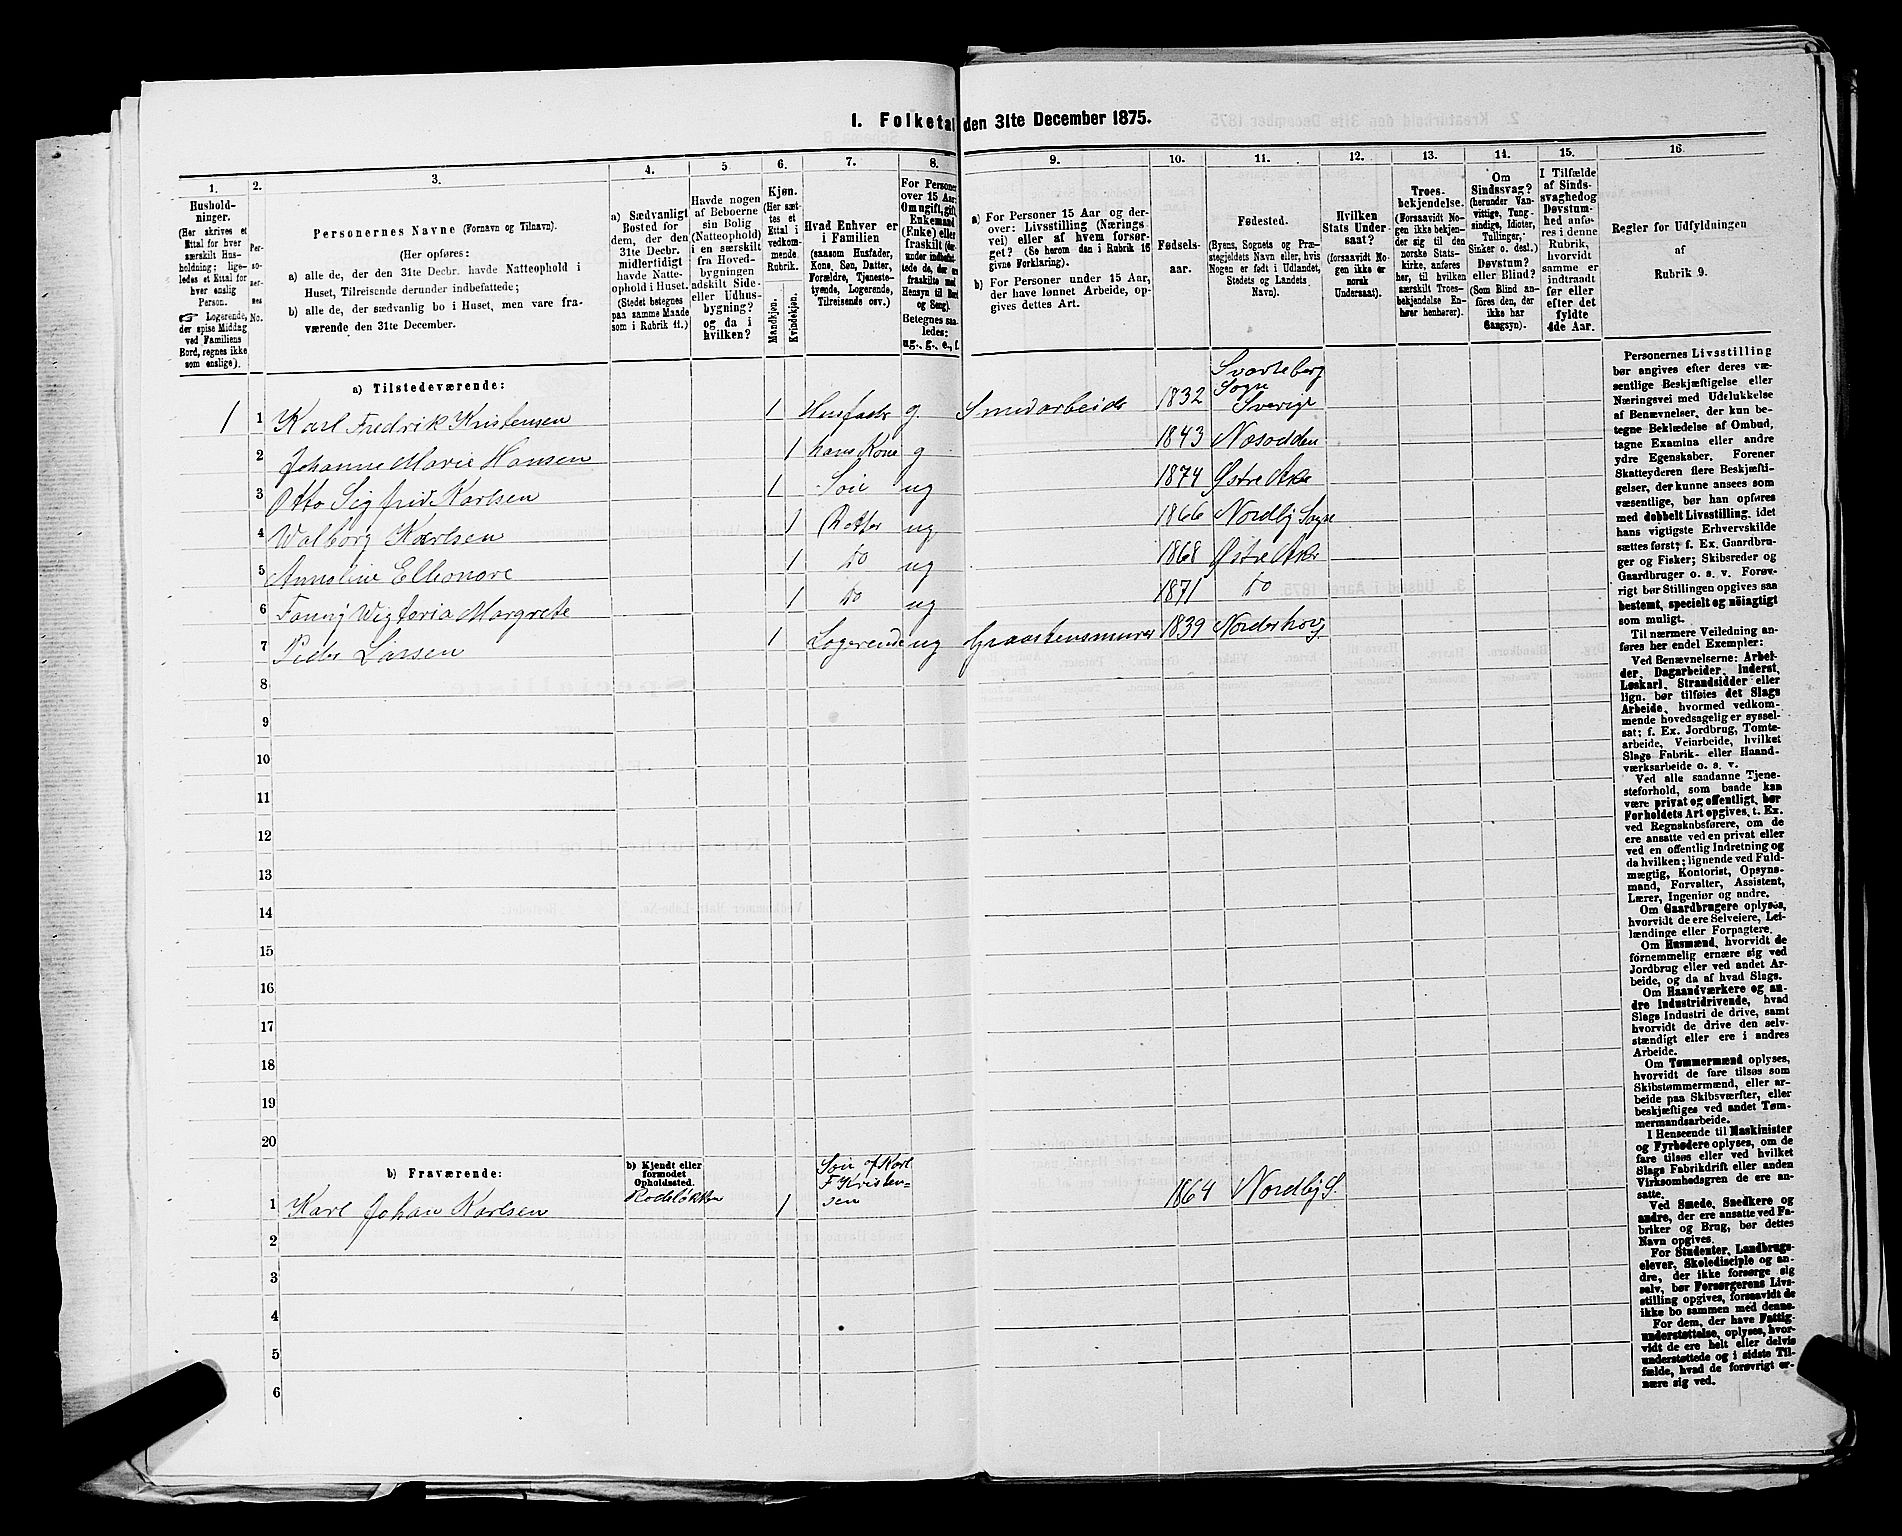 1. Folketal den 31te December 1875.
1. 2. 3. 4. 5. 6. 7. 8. 9. 10. 11. 12. 13. 14. 15. 16.
Hushold-
ninger.
(Her skrives et
Ettal for hver
særskilt Hus-
holdning; lige-
ledes et Ettal for
hver enslig
Person.
Logerende,
der spise Middag
ved Familiens
Bord, regnes ikke
som enslige).
Per-
so-
ner-
nes
No.
Personernes Navne (Fornavn og Tilnavn).
(Her opføres:
a) alle de, der den 31te Decbr. havde Natteophold i
Huset, Tilreisende derunder indbefattede;
b) alle de, der sædvanlig bo i Huset, men vare fra-
værende den 31te December.
a) Sædvanligt
Bosted for
dem, der den
31te Decbr.
midlertidigt
havde Natte-
ophold i Huset.
(Stedet betegnes
paa samme Maade
som i Rubrik 11.)
Havde nogen
af Beboerne
sin Bolig
(Natteophold)
i en særskilt
fra Hoved-
bygningen
adskilt Side-
eller Udhus-
bygning?
og da i
hvilken?
Kjøn.
(Her sæt-
tes et
Ettal i
vedkom-
mende
Rubrik.
Mandkjøn.
Kvindekjøn.
Hvad Enhver er
i Familien
(saasom Husfader,
Kone, Søn, Datter,
Forældre, Tjeneste-
tyende, Logerende,
Tilreisende osv.)
For Personer
over 15 Aar:
Om ugift, gift,
Enkemand
(Enke) eller
fraskilt
Betegnes saa-
ledes:
ug., g., e., f.
a) For Personer 15 Aar og der-
over: Livsstilling (Nærings-
vei) eller af hvem forsør-
get? (Se herom den i Rubrik 16
givne Forklaring).
b) For Personer under 15 Aar,
der have lønnet Arbeide, op-
gives dettes Art.
Fødsels-
aar.
Fødested.
(Byens, Sognets og Præ-
stegjeldets Navn eller, hvis
Nogen er født i Udlandet,
Stedets og Landets
Navn).
Hvilken
Stats Under-
saat?
(forsaavidt No-
gen ikke er
norsk
Undersaat).
Troes-
bekjendelse.
(Forsaavidt No-
gen ikke bekjen-
der sig til den
norske Stats-
kirke, anføres
her, til hvilken
særskilt Troes-
bekjendelse En-
hver henhører).
Om
Sindssvag?
(herunder Van-
vittige, Tung-
sindige, Idioter,
Tullinger,
Sinker o. desl.)
Døvstum?
eller Blind?
(Som Blind an-
føres den, der
ikke har
Gangsyn).
I Tilfælde
af Sinds-
svaghed og
Døvstum-
hed anfø-
res i denne
Rubrik,
hvorvidt
samme er
indtraadt
før eller
efter det
fyldte
4de Aar.
Regler for Udfyldningen
af
Rubrik 9.
a) Tilstedeværende:
1 1 Karl Fredrik Kristensen 1 Husfader g Smedarbeider 1832 Svarteberg Sogn Sverige
2 Johanne Marie Hansen 1 hans Kone g 1843 Næsodden
3 Otto Sigfrid Karlsen 1 Søn ug 1874 Østre Aker
4 Walborg Karlsen 1 Datter ug 1866 Nordby Sogn
5 Annoline Elleonore 1 do ug 1868 Østre Aker
6 Fanny Wigtoria Margrete 1 do ug 1871 do
7 Peder Larsen 1 Logerende ug Graastensmurer 1839 Norderhov
8
9
10
11
12
13
14
15
16
17
18
19
20
b) Fraværende:
b) Kjendt eller
formodet
Opholdssted.
1 Karl Johan Karlsen Rodeløkken 1 Søn af Karl F Kristensen 1864 Nordby S.
2
3
4
5
6
Personernes Livsstilling
bør angives efter deres væ-
sentlige Beskjæftigelse eller
Næringsvei med Udelukkelse
af Benævnelser, der kun be-
tegne Beklædelse af Ombud,
tagne Examina eller andre
ydre Egenskaber. Forener
Skatteyderen flere Beskjæfti-
gelser, der kunne ansees som
væsentlige, bør han opføres
med dobbelt Livsstilling, idet
hans vigtigste Erhvervskilde
sættes først; f. Ex. Gaardbru-
ger og Fisker; Skibsreder og
Gaardbruger o. s. v. Forøv-
rigt bør Stillingen opgives saa
bestemt, specielt og nöiagtigt
som muligt.
Til nærmere Veiledning an-
føres her endel Exempler:
Ved Benævnelserne: Arbei-
der, Dagarbeider, Inderst,
Løskarl, Strandsidder eller
lign. bør tilføies det Slags
Arbeide, hvormed vedkom-
mende hovedsagelig er syssel-
sat; f. Ex. Jordbrug, Tomte-
arbeide, Veiarbeide, hvilket
Slags Fabrik- eller Haand-
værksarbeide o. s. v.
Ved alle saadanne Tjene-
steforhold, som baade kan
være privat og offentligt, bør
Forholdets Art opgives, t. Ex.
ved Regnskabsførere, om de
ere ansatte ved en privat eller
ved en offentlig Indretning og
da hvilken; lignende ved Fuld-
mægtig, Kontorist, Opsyns-
mand, Forvalter, Assistent,
Lærer, Ingeniør og andre.
Om Gaardbrugere oplyses,
hvorvidt de ere Selveiere, Lei-
lændinge eller Forpagtere.
Om Husmænd, hvorvidt de
fornemmelig ernære sig ved
Jordbrug eller ved andet Ar-
beide, og da af hvad Slags.
Om Haandværkere og an-
dre Industridrivende, hvad
Slags Industri de drive, samt
hvorvidt de drive den selv-
stændigt eller ere i andres
Arbeide.
Om Tømmermænd oplyses,
hvorvidt de fare tilsøs som
Skibstømmermænd, eller ar-
beide paa Skibsværfter, eller
beskjæftiges ved andet Tøm-
mermandsarbeide.
I Henseende til Maskinister
og Fyrbødere oplyses, om de
fare tilsøs eller ved hvilket
Slags Fabrikdrift eller anden
Virksomhedsgren de ere an-
satte.
Ved Smede, Snedkere og
andre, der ere ansatte ved Fa-
briker og Brug, bør dettes
Navn opgives.
For Studenter, Landbrugs-
elever, Skoledisciple og an-
dre, der ikke forsørge sig
selv, bør Forsørgerens Livs-
stilling opgives, forsaavidt de
ikke bo sammen med denne.
For dem, der have Fattig-
understøttelse, oplyses, hvor-
vidt de ere helt eller delvis
understøttede og i sidste Til-
fælde, hvad de forøvrigt er-
nære sig ved.